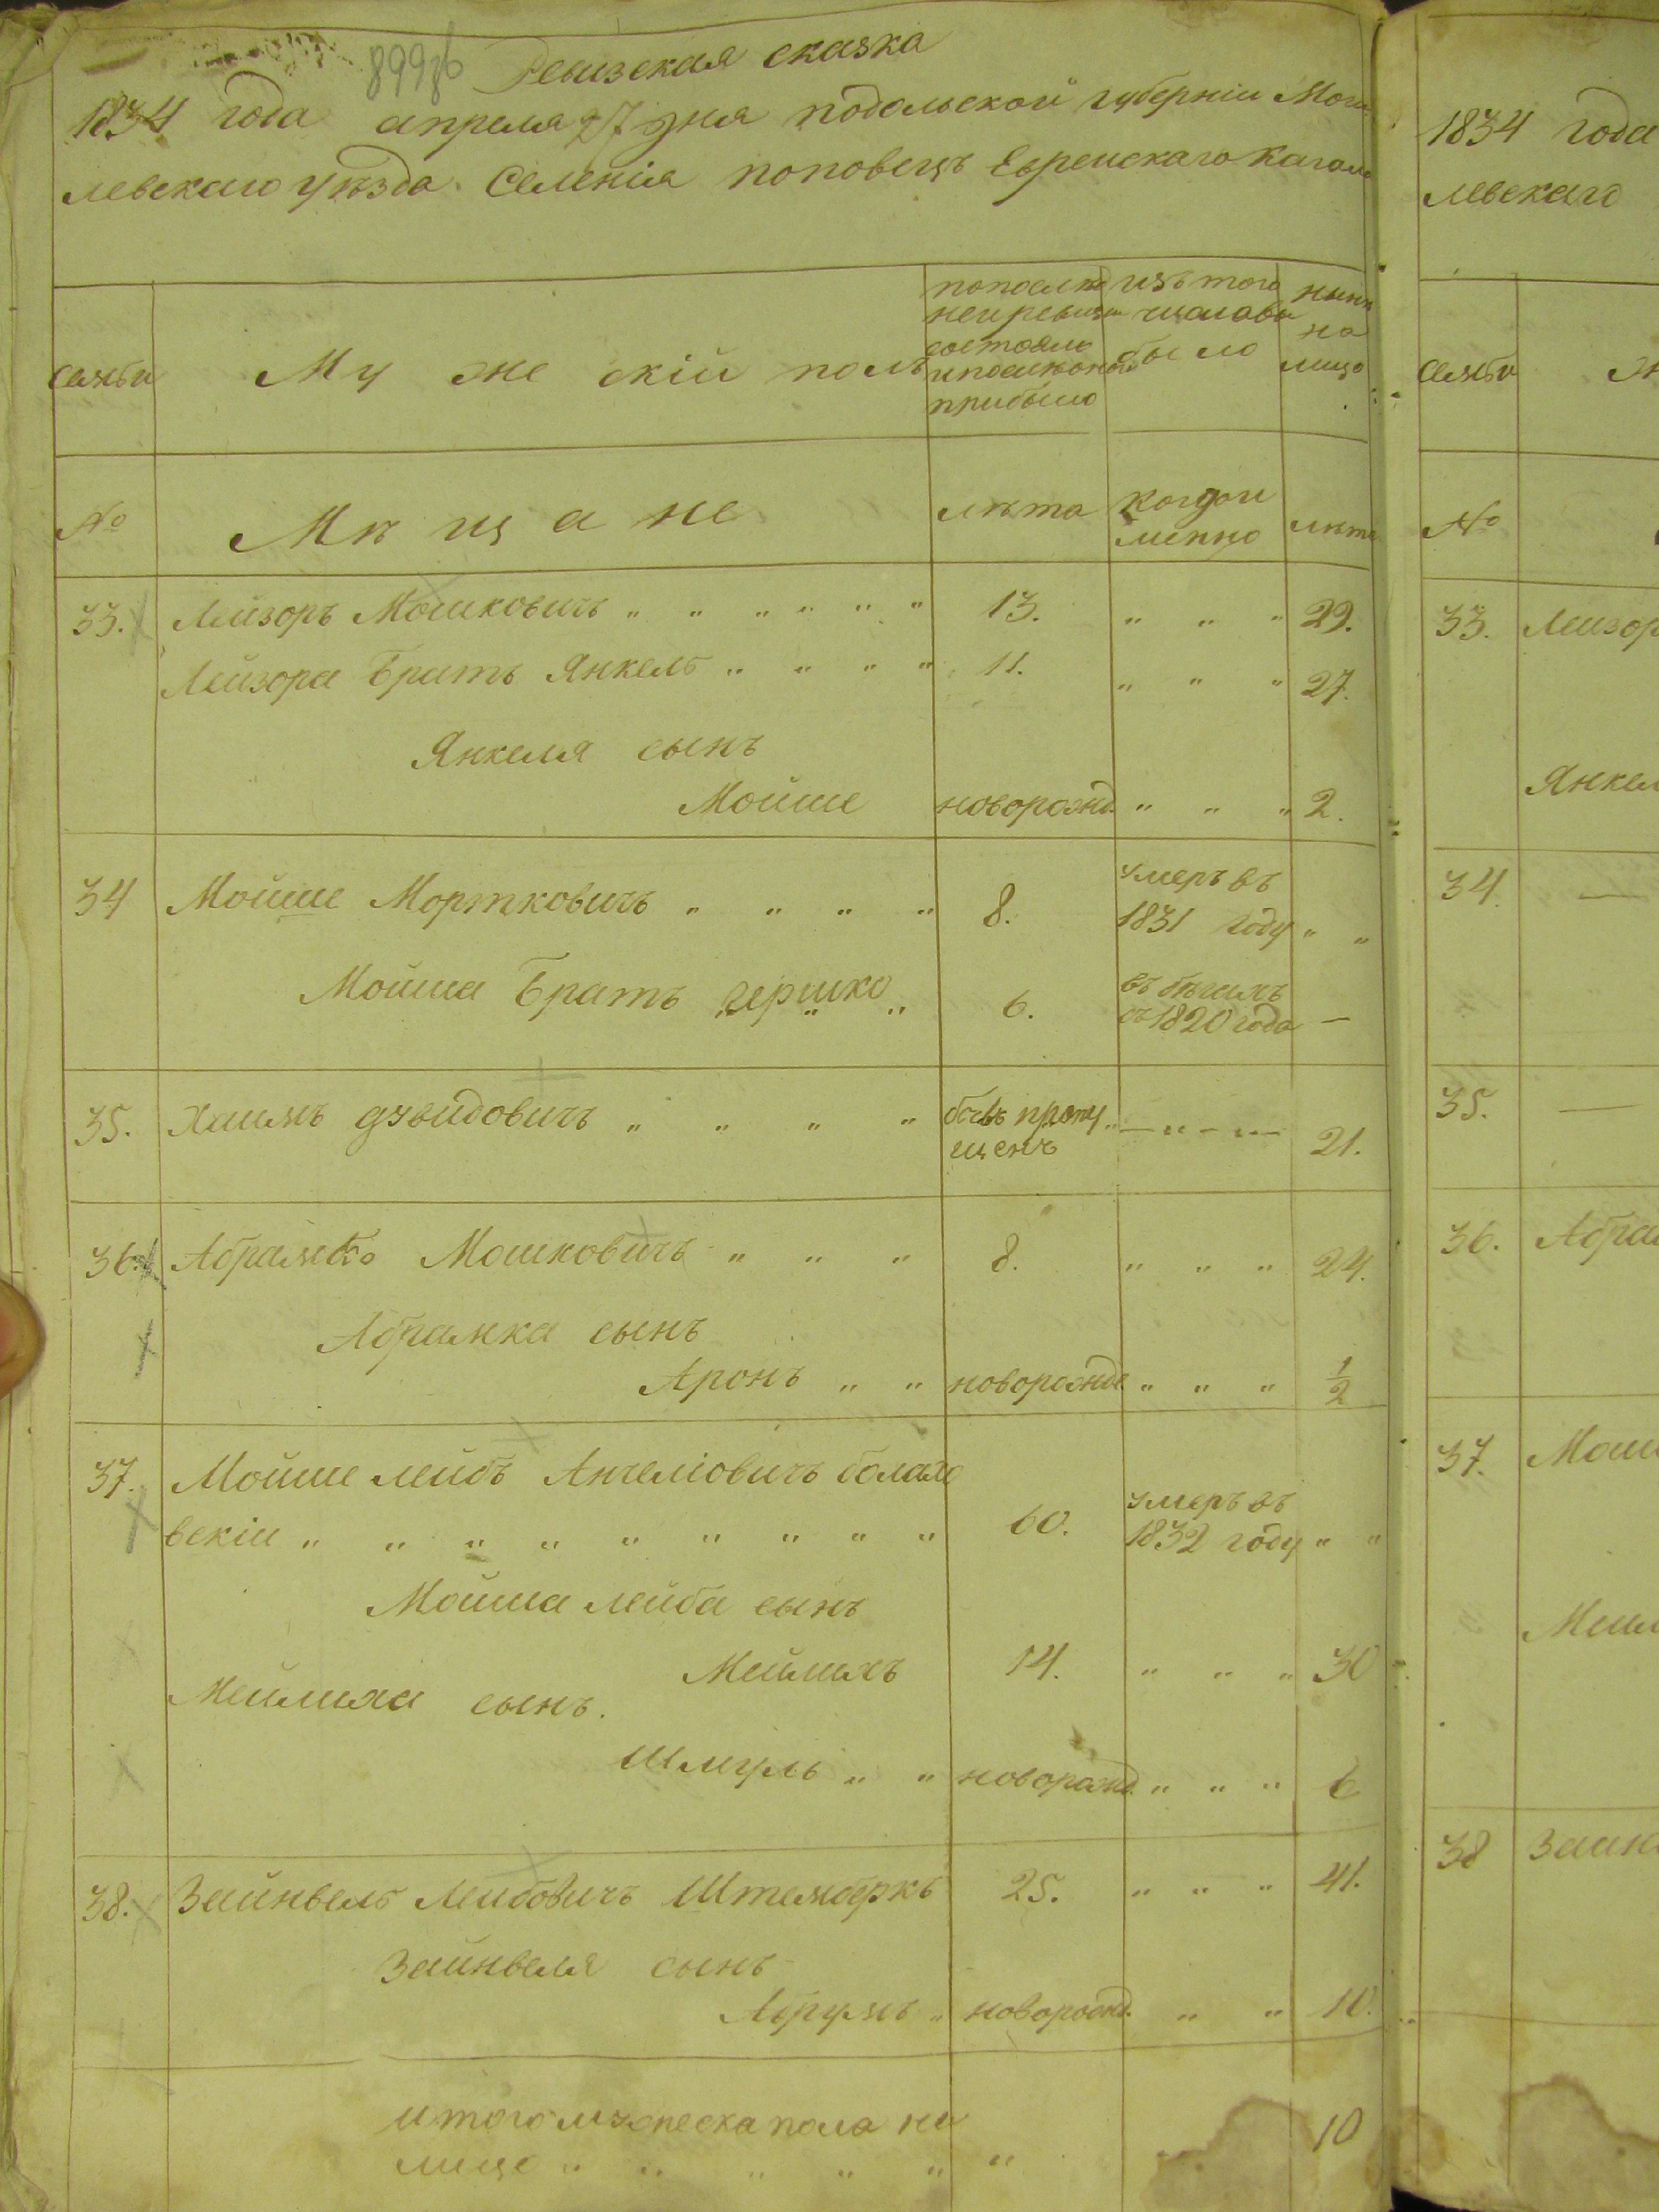 899об
Ревизская сказка
1834 года апреля 27 дня подольской губерніи Моги
левскаго уѣзда. Селенія поповецъ Еврейскаго Кагала
семьи
Мужескій полъ
попослѣд
ней ревизіи
состояло
и послѣ оной
прибыло
изъ того
числа вы
было
нынѣ
на
лицо
№
Мѣщане
лѣта
когда и
менно
лѣта
33. Лейзоръ Мошковичъ " " " " " " 13. " " " 29.
Лейзора Братъ Янкель " " " " 11. " " " 27.
Янкеля сынъ
Мойше новорожд. " " " 2.
34 Мойше Мортковичъ " " " " 8. умеръ въ
1831 году " "
Мойша Братъ гершко " " " 6. въ бѣгахъ
съ 1820 года —
35. Хаимъ дувидовичъ " " " " былъ пропу
щенъ — " — " — 21.
36. Абрамко Мошковичъ " " " 8. " " " 24.
Абрамка сынъ
Аронъ " " новорожд. " " " 1/2
37. Мойше лейбъ Анчеліовичъ
вскій " " " " " " " " " 60. умеръ въ
1832 году " "
Мойша лейба сынъ
Мейлихъ 14. " " " 30
Мейлиха сынъ.
Шмуль " " новорожд. " " " 6
38. Зайнвель Лейбовичъ Штемберкъ 25. " " " 41.
Зайнвеля сынъ
Абрумъ " новорожд. " " 10.
итого мужеска пола на
лицо " " " " " " 10
1834 года
левскаго
семьи
№
33. Лейзор
Янкел
34. —
35. —
36. Абрам
37. Мош
Мейл
38 Зайн